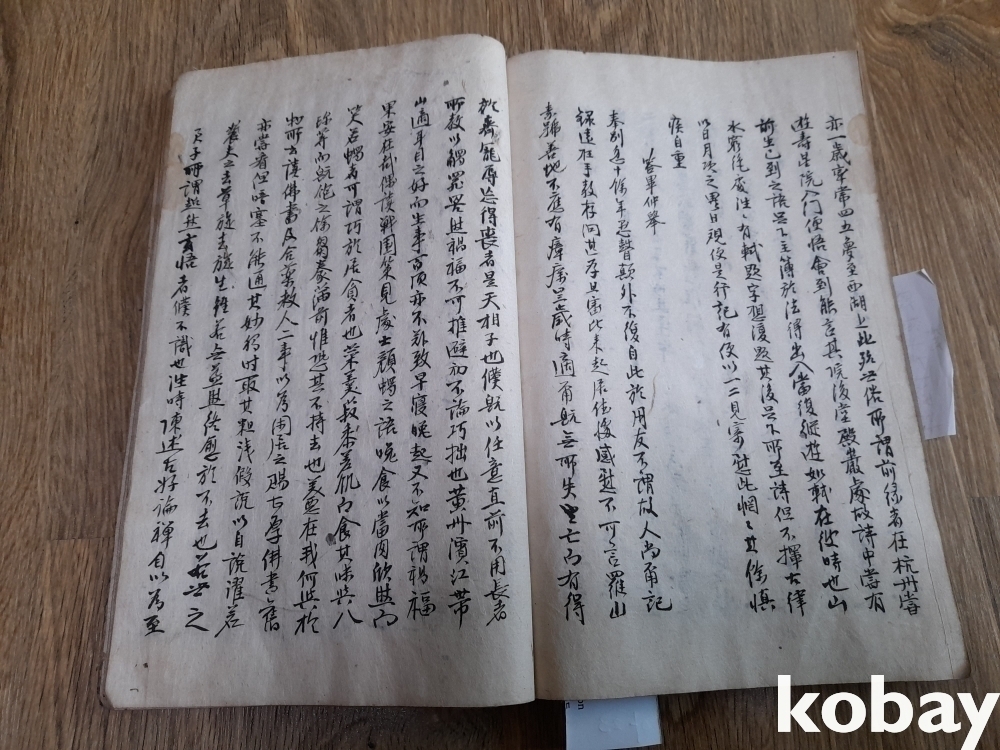 亦一歲率常四五夢至西湖上此殆世俗所謂前緣者在杭州嘗
遊壽星院入门便悟曾到能言其院後堂殿巖處故詩中嘗有
前生已到之語足下主簿於法得出入當復縱遊如軾在彼時也山
水窮絕處往〻有軾題字想復題其後足下所至詩但不擇古律
以日月次之異日視便是行記有便以一二見寄慰此惘〻其餘慎
疾自重
答畢仲舉
奉別忽十餘年愚瞽顛仆不復自比於朋友不謂故人尚爾記
錄遠枉手教存问甚厚且審比來起居佳勝感慰不可言羅山
素號善地不應有瘴癘豈歲時適爾既無所失亡而有得
於齊寵辱忘得喪者是天相子也僕既以任意直前不用長者
所教以觸罪罟然禍福不可推避初不論巧拙也黃州濱江帶
山適耳目之好而生事百須亦不難致早寢晚起又不知所謂禍福
果安在哉偶讀戰國策見處士顏蠋之語晚食以當肉欣然而
笑若蠋者可謂巧於居貧者也菜羹菽黍差飢而食其味與八
珍等而既飽之餘芻豢滿前惟恐其不持去也美惡在我何與於
物所云讀佛書及合藥救人二事以為閑居之賜甚厚佛書舊
亦嘗看但暗塞不能通其妙獨時取其粗淺假說以自洗濯若
農夫之去草旋去旋生雖若無益然終愈於不去也若世之
君子所謂超然玄悟者僕不識也往時陳述古好論禪自以為至
kobay